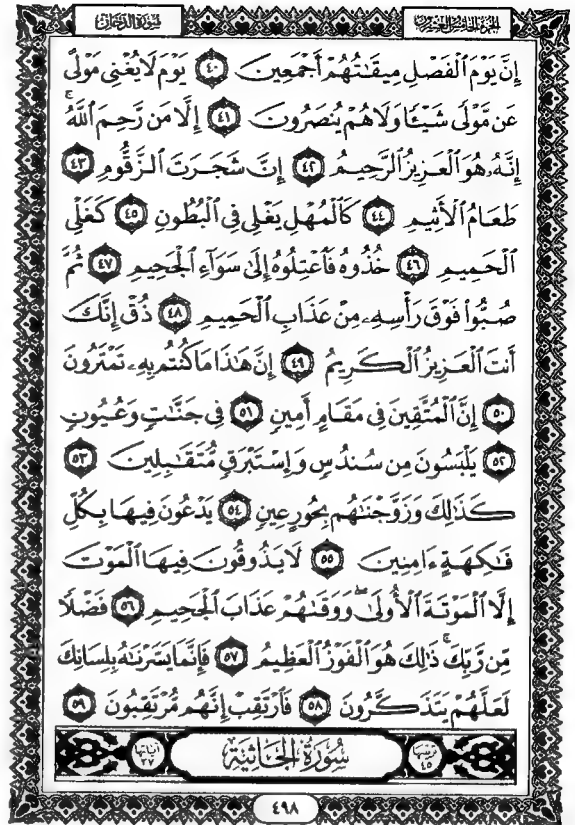 سُورَةُ الدُّخَانِ
الجُزْءُ الخَامِسُ وَالعِشْرُونَ
إِنَّ يَوْمَ ٱلْفَصْلِ مِيقَٰتُهُمْ أَجْمَعِينَ ٤٠ يَوْمَ لَا يُغْنِى مَوْلًى
عَن مَّوْلًى شَيْـًٔا وَلَا هُمْ يُنصَرُونَ ٤١ إِلَّا مَن رَّحِمَ ٱللَّهُ ۚ
إِنَّهُۥ هُوَ ٱلْعَزِيزُ ٱلرَّحِيمُ ٤٢ إِنَّ شَجَرَتَ ٱلزَّقُّومِ ٤٣
طَعَامُ ٱلْأَثِيمِ ٤٤ كَٱلْمُهْلِ يَغْلِى فِى ٱلْبُطُونِ ٤٥ كَغَلْىِ
ٱلْحَمِيمِ ٤٦ خُذُوهُ فَٱعْتِلُوهُ إِلَىٰ سَوَآءِ ٱلْجَحِيمِ ٤٧ ثُمَّ
صُبُّوا۟ فَوْقَ رَأْسِهِۦ مِنْ عَذَابِ ٱلْحَمِيمِ ٤٨ ذُقْ إِنَّكَ
أَنتَ ٱلْعَزِيزُ ٱلْكَرِيمُ ٤٩ إِنَّ هَٰذَا مَا كُنتُم بِهِۦ تَمْتَرُونَ
٥٠ إِنَّ ٱلْمُتَّقِينَ فِى مَقَامٍ أَمِينٍ ٥١ فِى جَنَّٰتٍ وَعُيُونٍ
٥٢ يَلْبَسُونَ مِن سُندُسٍ وَإِسْتَبْرَقٍ مُّتَقَٰبِلِينَ ٥٣
كَذَٰلِكَ وَزَوَّجْنَٰهُم بِحُورٍ عِينٍ ٥٤ يَدْعُونَ فِيهَا بِكُلِّ
فَٰكِهَةٍ ءَامِنِينَ ٥٥ لَا يَذُوقُونَ فِيهَا ٱلْمَوْتَ
إِلَّا ٱلْمَوْتَةَ ٱلْأُولَىٰ ۖ وَوَقَىٰهُمْ عَذَابَ ٱلْجَحِيمِ ٥٦ فَضْلًا
مِّن رَّبِّكَ ۚ ذَٰلِكَ هُوَ ٱلْفَوْزُ ٱلْعَظِيمُ ٥٧ فَإِنَّمَا يَسَّرْنَٰهُ بِلِسَانِكَ
لَعَلَّهُمْ يَتَذَكَّرُونَ ٥٨ فَٱرْتَقِبْ إِنَّهُم مُّرْتَقِبُونَ ٥٩
ترتيبها ٤٥ سُورَةُ الجَاثِيَةِ آياتها ٣٧
٤٩٨